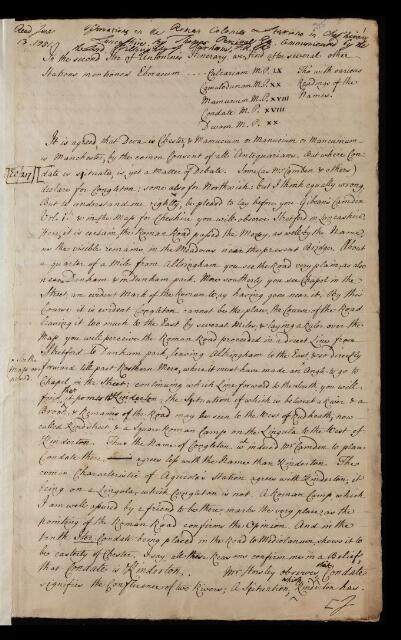 Read June
13. 1751.
Observations on the Roman Colonies & Stations in Cheshire &
Lancashire, By Thomas Percival Esq. communicated by
In the second Iter of Antonine's Itinerary, we find after several other
Stations mentioned Eboracum ---- Calcariam M.P. IX
Camulodunum M.P. XX
Mamucium M.P. XVIII
Condate M.P. XVIII
Devam M. P. XX
Tho with various
Readings of the
Names.
It is agreed that Deva is Chester, & Mamucium or Manucium or Mancunium
is Manchester, by the comon Consent of all Antiquarians. But where Con-
date is situate, is yet a Matter of Debate. Some (as Mr Cambden & others)
declare for Congleton: some also for Northwich: but I think equally wrong.
But to understand me rightly, be pleased to lay before you Gibson's Camden
Vol. 1st & in the Map for Cheshire you will observe Stretford in Lancashire
Here, it is certain the Roman Road passed the Mersey, as well by the Name,
as the visible remains in the Meadows near the present Bridge. About
a quarter of a Mile from Altringham you see the Road very plain, as also
near Dunham & in Dunham park. More southerly you see Chapel in the
Street, an evident Mark of the Roman Way having gone near it. By this
Course it is evident Congleton cannot be the place, the Course of the Road
leaving it too much to the East by several Miles, & laying a Ruler over the
Map you will perceive the Roman Road proceeded in a direct Line from
Stretford to Dunham park, leaving Altringham to the East & so directly
forward till past Rosthern Mere, where it must have made an Angle to go to
Chapel in the Street; continuing which Line forward to the South, you will
find it points to Kinderton: the Situation of which is betwixt a River & a
Brook, & Remains of the Road may be seen to the West of Rudheath, now
called Kind street & a Square Roman Camp on the Lingula to the West of
Kinderton. Then the Name of Congleton, wch induced Mr Camden to place
Condate there, agrees less with the Name than Kinderton. The
comon Characteristic of Agricola's Station agrees with Kinderton, it
being on a Lingula, which Congleton is not. A Roman Camp which
I am well assured by a friend to be there marks the very place; as the
pointing of the Roman Road confirms the Opinion. And in the
tenth Iter Condate being placed in the Road to Mediolanum, shows it to
be easterly of Chester. I say all these Reasons confirm me in a Belief,
that Condate is Kinderton. Mr Horsley observes, that Condate
signifies the Confluence of two Rivers; a Situation, which Kinderton has.